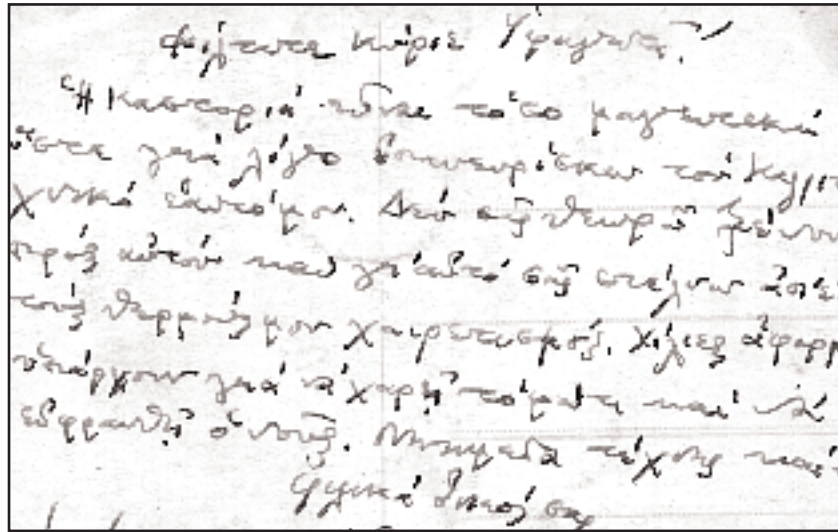 Φίλτατε κύριε Ὑφαντῆ!
Ἡ Καστοριά εἶναι τόσο μαγευτική
ὥστε γιά λίγο ξαναευρίσκω τόν καλλιτε
χνικό ἑαυτό μου. Δέν σᾶς θεωρῶ ξένον
πρός αὐτόν καί γι' αὐτό σᾶς στέλνω ἀπ' ἐ
τούς θερμούς μου χαιρετισμούς. Χίλιες ἀφορμ
ὑπάρχουν γιά νά χαρῇ τό μάτι καί νά
εὐφρανθῇ ὁ νοῦς. Μνημεῖα τέχνης καί
Φιλικά δικός σας